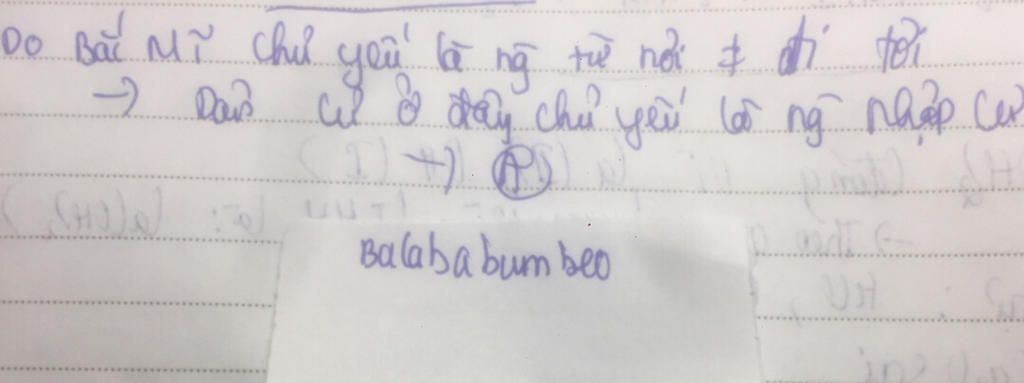 Do Bắc Mĩ chủ yếu là ng từ nơi ≠ đi tới
→ Dân cư ở đây chủ yếu là ng nhập cư
→ A
Balababumbeo